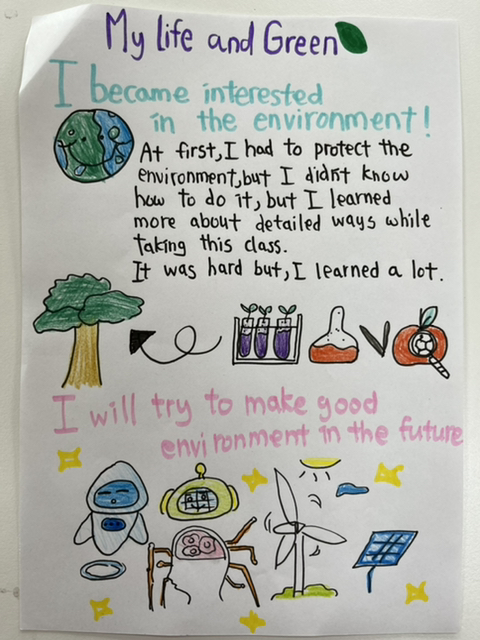 My life and Green
I became interested
in the environment!
At first, I had to protect the
environment, but I didn't know
how to do it, but I learned
more about detailed ways while
taking this class.
It was hard but, I learned a lot.
I will try to make good
environment in the future